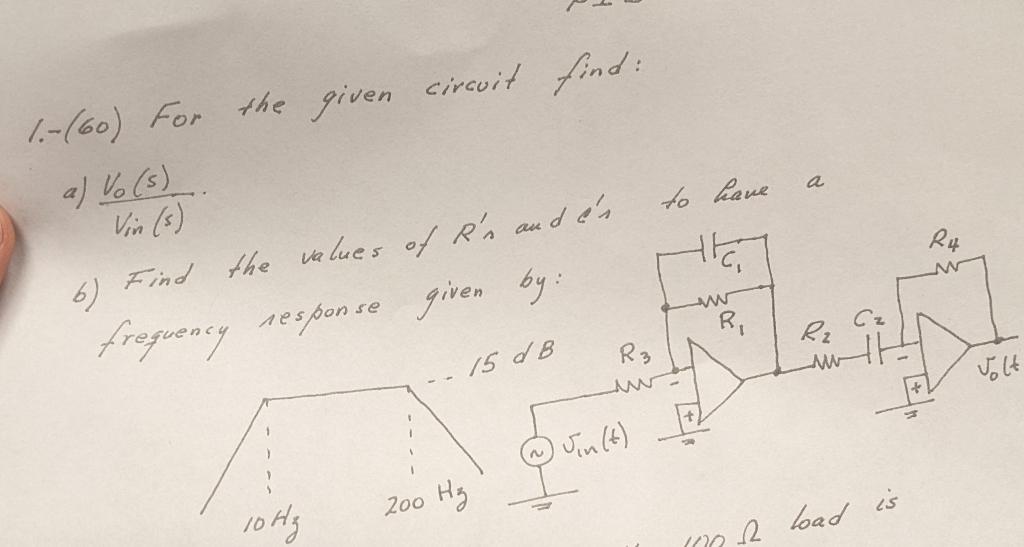 1.-(60) For the given circuit find:
a) Vo(s)
Vin(s)
b) Find the values of R's and c's to have a
frequency response given by:
-- 15 dB
10 Hz
200 Hz
C₁
R₁
R₃
R₂
C₂
R₄
-
+
-
+
~
Vin(t)
Vo(t
100 Ω load is